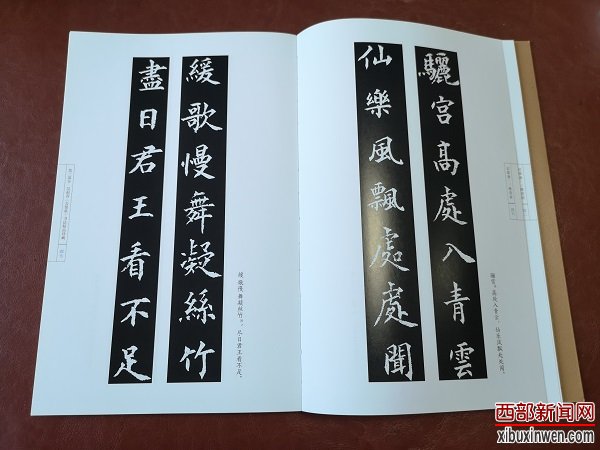 驪宮高處入青雲
仙樂風飄處處聞
驪宮高處入青雲，仙樂風飄處處聞。
緩歌慢舞凝絲竹
盡日君王看不足
緩歌慢舞凝絲竹，盡日君王看不足。
西部新闻网
xibuxinwen.com